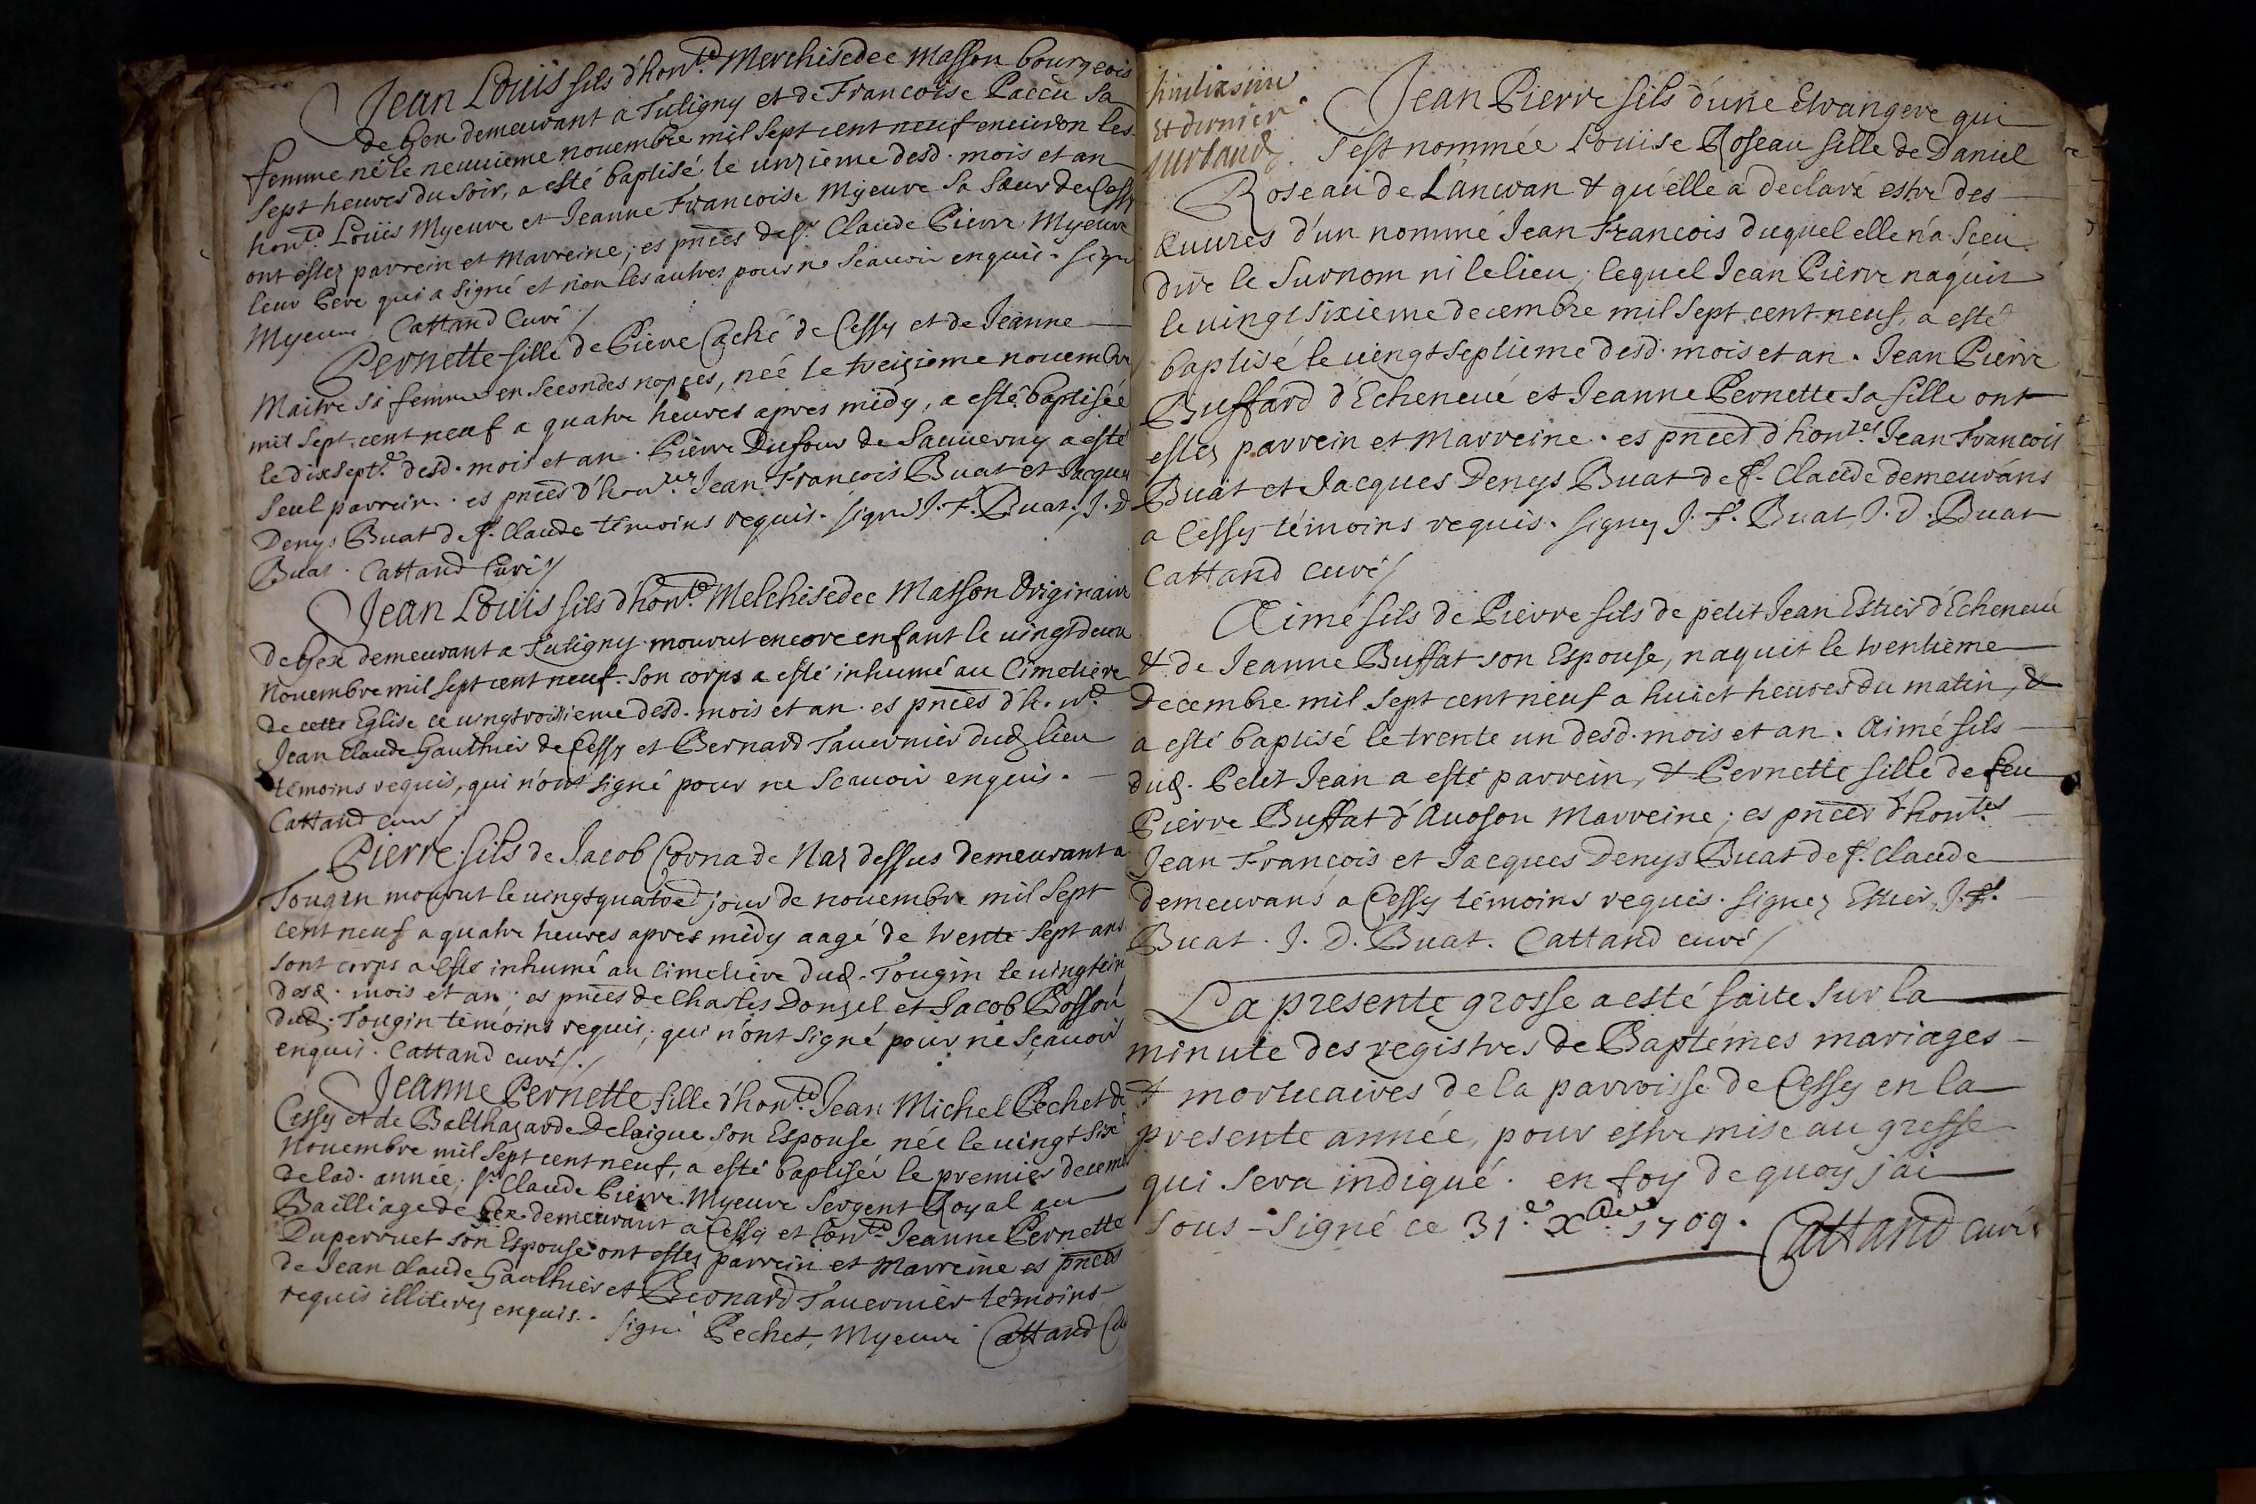 Jean Louis fils d'hon.te Merchisedec Masson bourgeois
de Gex demeurant a Tutigny et de Francoise Paccu sa
femme né le neuuieme nouembre mil sept cent neuf enuiron les
sept heures du soir, a esté baptisé le unzieme desd. mois et an
hon.te Louis Myeure et Jeanne Francoise Myeure sa sœur de Cessy
ont estez parrein et marreine; es pnces de s.r Claude Pierre Myeure
leur Pere qui a signé et non les autres pour ne scauoir enquis. signé
Myeure. Cattand Curé /
Pernette fille de Piere Caché de Cessy et de Jeanne
Maitre sa femme en secondes nopces, née le treizieme nouembre
mil sept cent neuf a quatre heures apres midy, a esté baptisée
le dixsept.e desd. mois et an. Pierre Dufour de Sauuerny a esté
seul parrein. es pnces d'hon.tes Jean François Buat et Jacques
Denys Buat de f. Claude témoins requis. signé J. F. Buat. J. D
Buat. Cattand Curé /
Jean Louis fils d'hon.te Melchisedec Masson Originaire
de Gex demeurant a Tutigny mourut encore enfant le uingtdeux
nouembre mil sept cent neuf. son corps a esté inhumé au Cimetiere
de cette Eglise ce uingtroisieme desd. mois et an. es pnces d'h.
Jean Claude Gauthier de Cessy et Bernard Tauernier dud. lieu
témoins requis, qui n'ont signé pour ne scauoir enquis.
Cattand curé /
Pierre fils de Jacob Corna de Naz dessus demeurant a
Tougin mourut le uingtquatre jour de nouembre mil sept
cent neuf a quatre heures apres midy aagé de trente sept ans
sont corps a esté inhumé au cimetiere dud. Tougin le uingtcin
desd. mois et an. es pnces de Charles Donzel et Jacob Bosson
dud. Tougin témoins requis; qui n'ont signé pour ne sçauoir
enquis. Cattand curé /.
Jeanne Pernette fille d'hon.te Jean Michel Pechet de
Cessy et de Balthazarde Delaigue son Espouse née le uingt six
nouembre mil sept cent neuf, a esté baptisée le premier decem
de lad. année; s.r Claude Pierre Myeure Sergent Royal au
Bailliage de Gex demeurant a Cessy et hon.te Jeanne Pernette
Duperruet son Espouse ont estez parrein et marreine es pnces
de Jean Claude Gauthier et Bernard Tauernier témoins
requis illiterez enquis. signé Pechet, Myeure Cattand Cu
Et dernier
Jean Pierre fils d'une Etrangere qui
s'est nommée Louise Roseau fille de Daniel
Roseau de Lancran & qu'elle a declaré estre des
œuures d'un nommé Jean Francois duquel elle n'a sceu
dire le surnom ni le lieu; lequel Jean Pierre náquit
le uingt sixieme decembre mil sept cent neuf, a esté
baptisé le uingtseptieme desd. mois et an. Jean Pierre
Buffard d'Echeneué et Jeanne Pernette sa fille ont
estez parrein et marreine. es pnces d'hon.tes Jean Francois
Buat et Jacques Denys Buat de f. Claude demeurans
a Cessy témoins requis. signez J. F. Buat, J. D. Buat
Cattand curé /
Aimé fils de Pierre fils de petit Jean Estier d'Echeneué
& de Jeanne Buffat son Espouse, naquit le trentieme
Decembre mil sept cent neuf a huict heures du matin, &
a esté baptisé le trente un desd. mois et an. Aimé fils
dud. Petit Jean a esté parrein, & Pernette fille de feu
Pierre Buffat d'Auoson Marreine; es pnces d'hon.tes
Jean François et Jacques Denys Buat de f. Claude
demeurans a Cessy témoins requis. signez Estier, J. F.
Buat. J. D. Buat. Cattand curé /
La presente grosse a esté faite sur la
minute des registres de Baptémes mariages
& mortuaires de la parroisse de Cessy en la
presente année, pour estre mise au greffe
qui sera indiqué. en foy de quoy j'ai
sous-signé ce 31.e Xbre 1709. Cattand curé